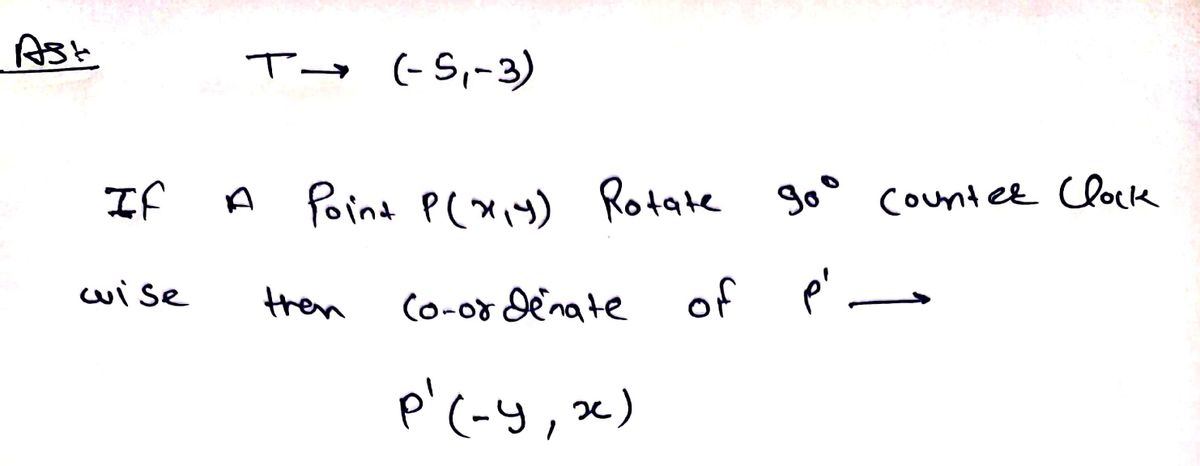 Ast T → (-5,-3)
If A Point P(x,y) Rotate 90° counter Clock
wise then Co-ordinate of P' →
P'(-y, x)